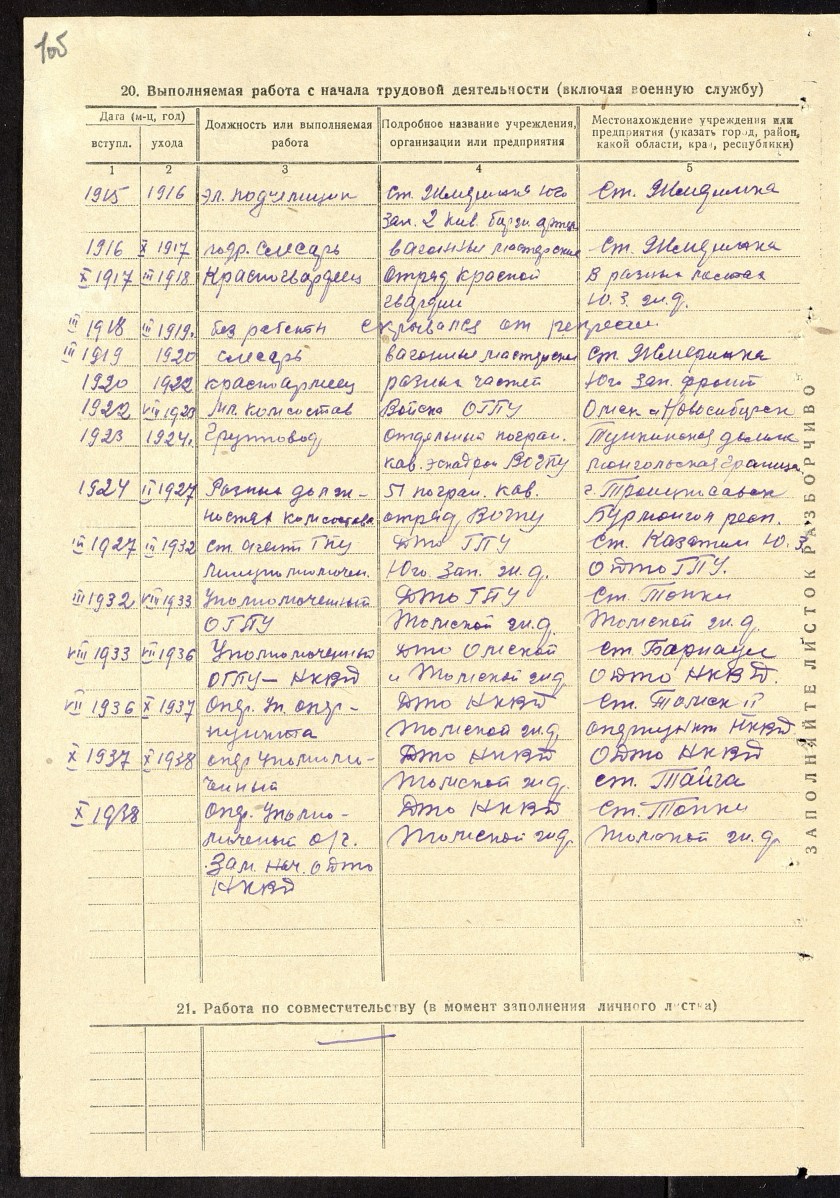 105
20. Выполняемая работа с начала трудовой деятельности (включая военную службу)
Дата (м-ц, год)
вступл. ухода
Должность или выполняемая работа
Подробное название учреждения, организации или предприятия
Местонахождение учреждения или предприятия (указать город, район, какой области, края, республики)
1 2 3 4 5
1915 1916 эл. Ст. Жмеринка Юго Ст. Жмеринка
Зап. 2
1916 X 1917 подр. слесарь вагонные мастерские Ст. Жмеринка
X 1917 III 1918 Красногвардеец Отряд Красной В разных местах
гвардии Ю. З. ж.д.
III 1918 III 1919. без работы скрывался от репрессии
III 1919 1920 слесарь вагонные мастерские Ст. Жмеринка
1920 1922 красноармеец разных частей Юго Зап. фронт
1922 VII 1923 мл. комсостав Войска ОГПУ Омск и Новосибирск
1923 1924. Групповод отдельный погран. Тункинская долина
кав. эскадрон ВОГПУ монгольская граница
1924 II 1927 Разных долж- 51 погран. кав. г. Троицкосавск
ностях комсостава отряд ВОГПУ Бурмонгол респ.
III 1927 III 1932 ст. агент ГПУ ДТО ГПУ ст. Казатин Ю. З.
Юго. Зап. ж.д. ОДТО ГПУ.
III 1932 VIII 1933 Уполномоченный ДТО ГПУ ст. Топки
ОГПУ Томской ж.д. Томской ж.д.
VIII 1933 VII 1936 Уполномоченный ДТО Омской ст. Барнаул
ОГПУ – НКВД и Томской ж.д. ОДТО НКВД.
VII 1936 X 1937 Опер. Уп. опер- ДТО НКВД ст. Томск II
пункта Томской ж.д. оперпункт НКВД
X 1937 X 1938 опер уполномо- ДТО НКВД ОДТО НКВД
ченный Томской ж.д. ст. Тайга
X 1938 Опер. Уполно- ДТО НКВД ст. Топки
моченый Томской ж.д. Томской ж.д.
Зам. нач. ОДТО
НКВД
21. Работа по совместительству (в момент заполнения личного листка)
ЗАПОЛНЯЙТЕ ЛИСТОК РАЗБОРЧИВО